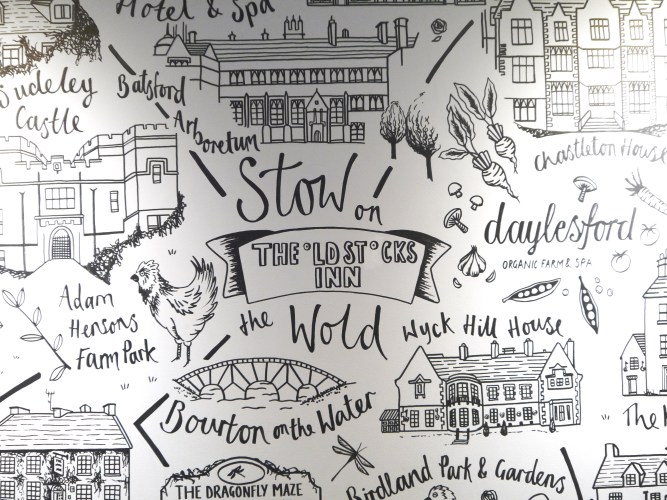 Hotel & Spa
Sudeley
Castle
Batsford
Arboretum
Chastleton House
Stow on
THE °LD ST°CKS
INN
the Wold
daylesford
ORGANIC FARM & SPA
Adam
Hensons
Farm Park
Wyck Hill House
Bourton on the Water
The
THE DRAGONFLY MAZE
Birdland Park & Gardens